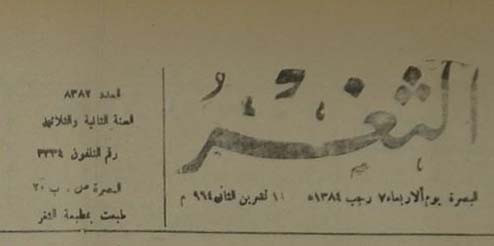 الثغر
البصرة يوم الاربعاء ٧ رجب ١٣٨٤ه ١١ تشرين الثاني ٩٦٤ م
العدد ٨٣٨٢
السنة الثانية والثلاثون
رقم التلفون ٣٢٣٤
البصرة ص. ب ٢٠
طبعت بمطبعة الثغر